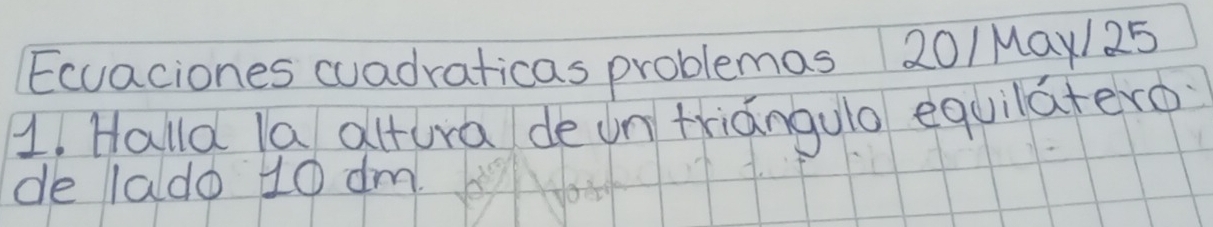 Ecuaciones cuadraticas problemas 20/May/25
1. Halla la altura de un triángulo equilátero
de lado 10 dm.